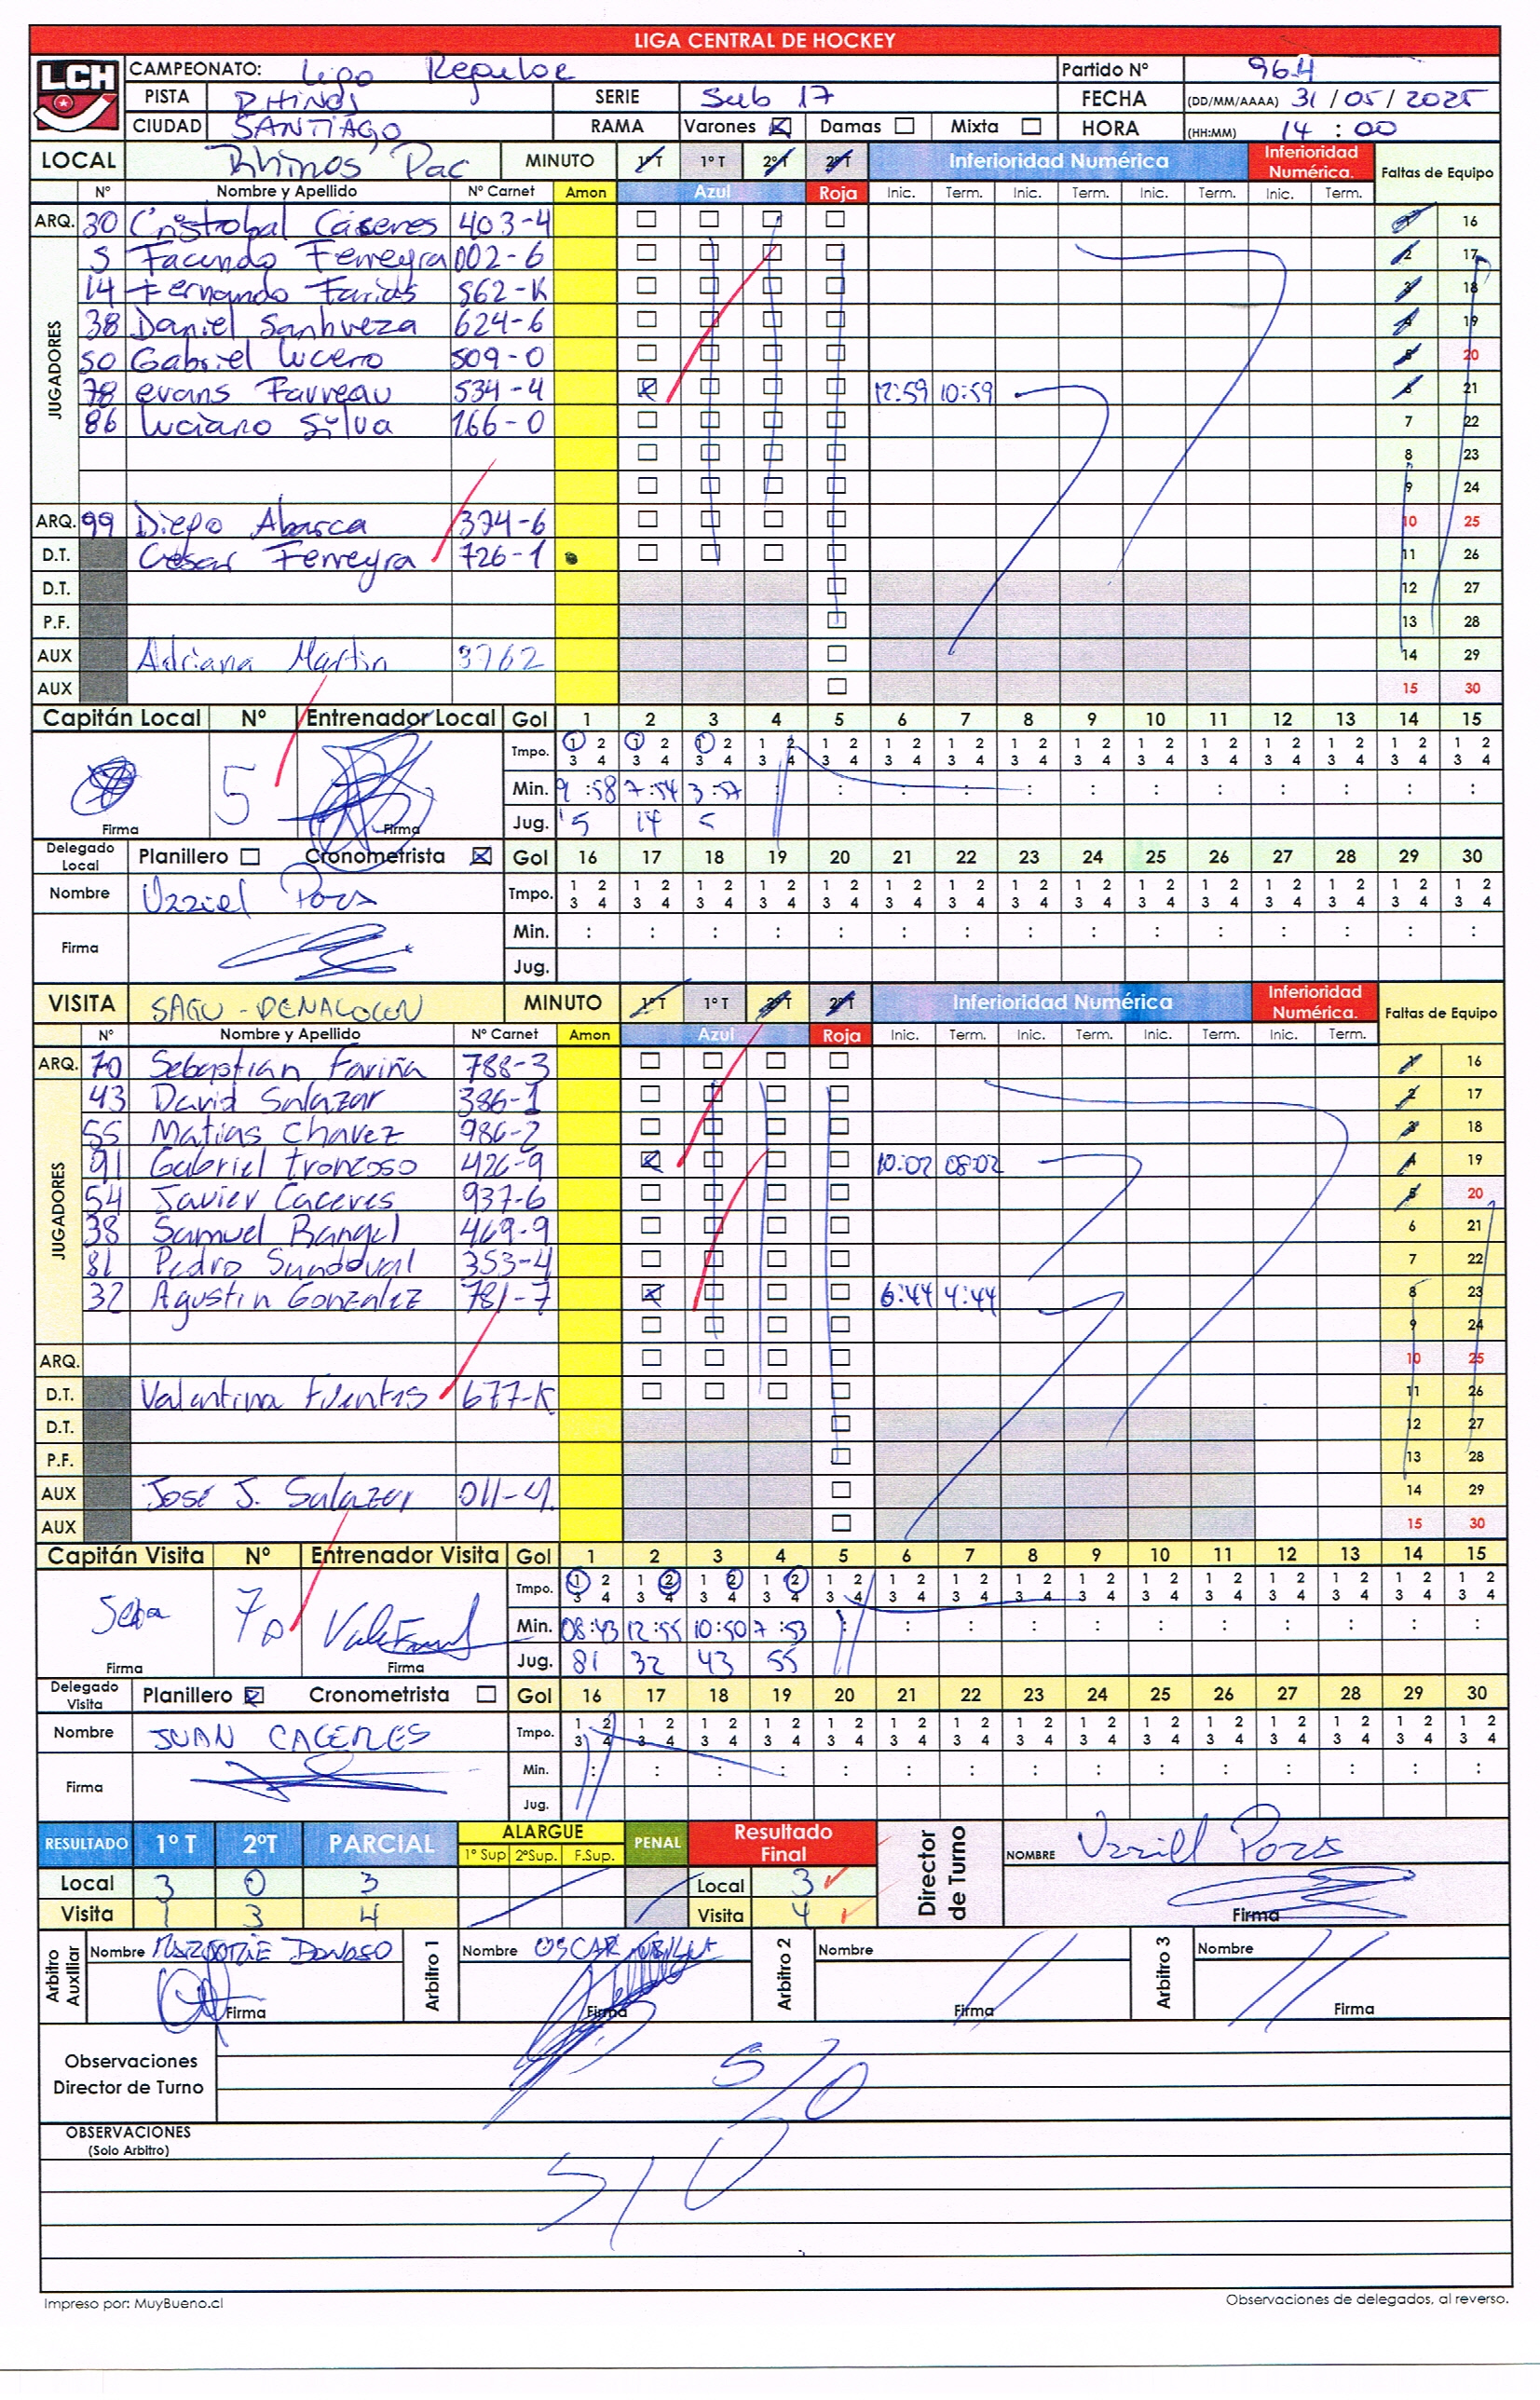 LIGA CENTRAL DE HOCKEY
LCH CAMPEONATO: Liga Regular Partido Nº 964
PISTA RHINOS SERIE Sub 17 FECHA (DD/MM/AAAA) 31 / 05 / 2025
CIUDAD SANTIAGO RAMA Varones Damas Mixta HORA (HH:MM) 14 : 00
LOCAL Rhinos Pac MINUTO 1º T 1º T 2º T 2º T Inferioridad Numérica Inferioridad Numérica. Faltas de Equipo
Nº Nombre y Apellido Nº Carnet Amon Azul Roja Inic. Term. Inic. Term. Inic. Term. Inic. Term.
ARQ. 30 Cristobal Cáseres 403-4 1 16
JUGADORES
5 Facundo Ferreyra 002-6 2 17
14 Fernando Farias 562-K 3 18
38 Daniel Sanhueza 624-6 4 19
50 Gabriel Lucero 509-0 5 20
78 evans Favreau 534-4 12:59 10:59 6 21
86 Luciano Silva 166-0 7 22
8 23
9 24
ARQ. 99 Diego Abarca 374-6 10 25
D.T. César Ferreyra 726-1 11 26
D.T. 12 27
P.F. 13 28
AUX Adriana Martin 3762 14 29
AUX 15 30
Capitán Local Nº Entrenador Local Gol 1 2 3 4 5 6 7 8 9 10 11 12 13 14 15
Tmpo. 1 2 1 2 1 2 1 2 1 2 1 2 1 2 1 2 1 2 1 2 1 2 1 2 1 2 1 2 1 2
3 4 3 4 3 4 3 4 3 4 3 4 3 4 3 4 3 4 3 4 3 4 3 4 3 4 3 4 3 4
5 Min. 9:58 7:54 3:57 : : : : : : : : : : : :
Firma Firma Jug. 5 14 5
Delegado Local Planillero Cronometrista Gol 16 17 18 19 20 21 22 23 24 25 26 27 28 29 30
Nombre Uzziel Pozs Tmpo. 1 2 1 2 1 2 1 2 1 2 1 2 1 2 1 2 1 2 1 2 1 2 1 2 1 2 1 2 1 2
3 4 3 4 3 4 3 4 3 4 3 4 3 4 3 4 3 4 3 4 3 4 3 4 3 4 3 4 3 4
Firma Min. : : : : : : : : : : : : : : :
Jug.
VISITA SAGU - PEÑALOLEN MINUTO 1º T 1º T 2º T 2º T Inferioridad Numérica Inferioridad Numérica. Faltas de Equipo
Nº Nombre y Apellido Nº Carnet Amon Azul Roja Inic. Term. Inic. Term. Inic. Term. Inic. Term.
ARQ. 70 Sebastian Fariña 788-3 1 16
JUGADORES
43 David Salazar 386-1 2 17
55 Matias Chavez 986-2 3 18
91 Gabriel troncoso 426-9 10:02 08:02 4 19
54 Javier Caceres 937-6 5 20
38 Samuel Rangel 469-9 6 21
81 Pedro Sandoval 353-4 7 22
32 Agustin Gonzalez 781-7 6:44 4:44 8 23
9 24
ARQ. 10 25
D.T. Valantina Fuentes 677-K 11 26
D.T. 12 27
P.F. 13 28
AUX José J. Salazar 011-4 14 29
AUX 15 30
Capitán Visita Nº Entrenador Visita Gol 1 2 3 4 5 6 7 8 9 10 11 12 13 14 15
Tmpo. 1 2 1 2 1 2 1 2 1 2 1 2 1 2 1 2 1 2 1 2 1 2 1 2 1 2 1 2 1 2
3 4 3 4 3 4 3 4 3 4 3 4 3 4 3 4 3 4 3 4 3 4 3 4 3 4 3 4 3 4
Seba 70 Min. 08:43 12:55 10:50 7:53 : : : : : : : : : : :
Firma Firma Jug. 81 32 43 55
Delegado Visita Planillero Cronometrista Gol 16 17 18 19 20 21 22 23 24 25 26 27 28 29 30
Nombre JUAN CACERES Tmpo. 1 2 1 2 1 2 1 2 1 2 1 2 1 2 1 2 1 2 1 2 1 2 1 2 1 2 1 2
3 4 3 4 3 4 3 4 3 4 3 4 3 4 3 4 3 4 3 4 3 4 3 4 3 4 3 4 3 4
Firma Min. : : : : : : : : : : : : : :
Jug.
RESULTADO 1º T 2ºT PARCIAL ALARGUE 1º Sup 2ºSup. F.Sup. PENAL Resultado Final Director de Turno NOMBRE Uzziel Pozs
Local 3 0 3 Local 3
Visita 1 3 4 Visita 4 Firma
Arbitro Auxiliar Nombre MARJORIE DONOSO Arbitro 1 Nombre OSCAR Arbitro 2 Nombre Arbitro 3 Nombre
Firma Firma Firma Firma
Observaciones Director de Turno S/O
OBSERVACIONES
(Solo Arbitro) S/O
Impreso por: MuyBueno.cl Observaciones de delegados, al reverso.